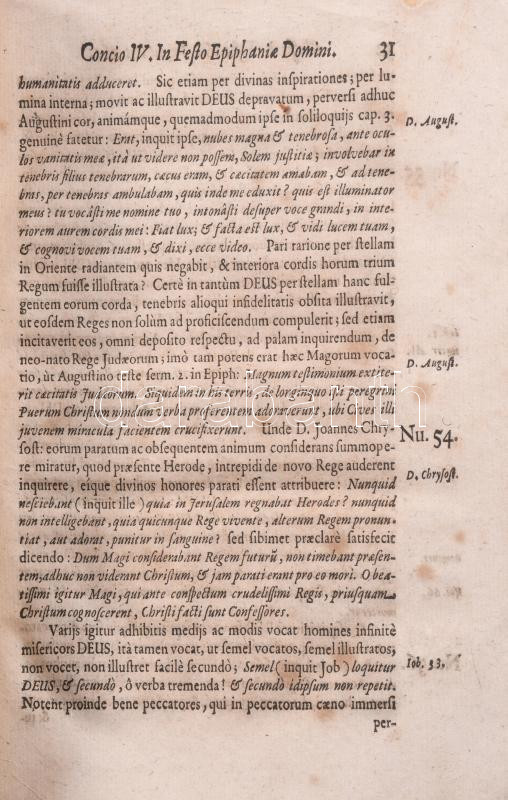 Concio IV. In Festo Epiphaniæ Domini. 31
humanitatis adduceret. Sic etiam per divinas inspirationes; per lu-
mina interna; movit ac illustravit DEUS depravatum, perversi adhuc
Augustini cor, animámque, quemadmodum ipse in soliloquijs cap. 3.
genuinè fatetur: Erat, inquit ipse, nubes magna & tenebrosa, ante ocu-
D. August.
los vanitatis meæ, ità ut videre non possem, Solem justitiæ; involvebar in
tenebris filius tenebrarum, cæcus eram, & cæcitatem amabam, & ad tene-
bras, per tenebras ambulabam, quis inde me eduxit? quis est illuminator
meus? tu vocâsti me nomine tuo, intonâsti desuper voce grandi, in inte-
riorem aurem cordis mei: Fiat lux; & facta est lux, & vidi lucem tuam,
& cognovi vocem tuam, & dixi, ecce video. Pari ratione per stellam
in Oriente radiantem quis negabit, & interiora cordis horum trium
Regum fuisse illustrata? Certè in tantùm DEUS per stellam hanc ful-
gentem eorum corda, tenebris alioqui infidelitatis obsita illustravit,
ut eosdem Reges non solùm ad proficiscendum compulerit; sed etiam
incitaverit eos, omni deposito respectu, ad palam inquirendum, de
neo-nato Rege Judæorum; imò tam potens erat hæc Magorum voca-
tio, ùt Augustino teste serm. 2. in Epiph: Magnum testimonium extite-
D. August.
rit cæcitatis Judæorum. Siquidem in his terris, de longinquo isti peregrini
Puerum Christum nondum verba proferentem adoraverunt, ubi Cives illi
juvenem miracula facientem crucifixerunt. Unde D. Joannes Chry-
Nu. 54.
sost: eorum paratum ac obsequentem animum considerans summope-
re miratur, quod præsente Herode, intrepidi de novo Rege auderent
D. Chrysost.
inquirere, eique divinos honores parati essent attribuere: Nunquid
nesciebant (inquit ille) quia in Jerusalem regnabat Herodes? nunquid
non intelligebant, quia quicunque Rege vivente, alterum Regem pronun-
tiat, aut adorat, punitur in sanguine? sed sibimet præclarè satisfecit
dicendo: Dum Magi considerabant Regem futurũ, non timebant præsen-
tem, adhuc non viderant Christum, & jam parati erant pro eo mori. O bea-
tissimi igitur Magi, qui ante conspectum crudelissimi Regis, priusquam
Christum cognoscerent, Christi facti sunt Confessores.
Varijs igitur adhibitis medijs ac modis vocat homines infinitè
misericors DEUS, ità tamen vocat, ut semel vocatos, semel illustratos,
non vocet, non illustret facilè secundò; Semel (inquit Job) loquitur
Iob. 33.
DEUS, & secundò, ô verba tremenda! & secundò idipsum non repetit.
Notent proinde bene peccatores, qui in peccatorum cæno immersi
per-
darabanth